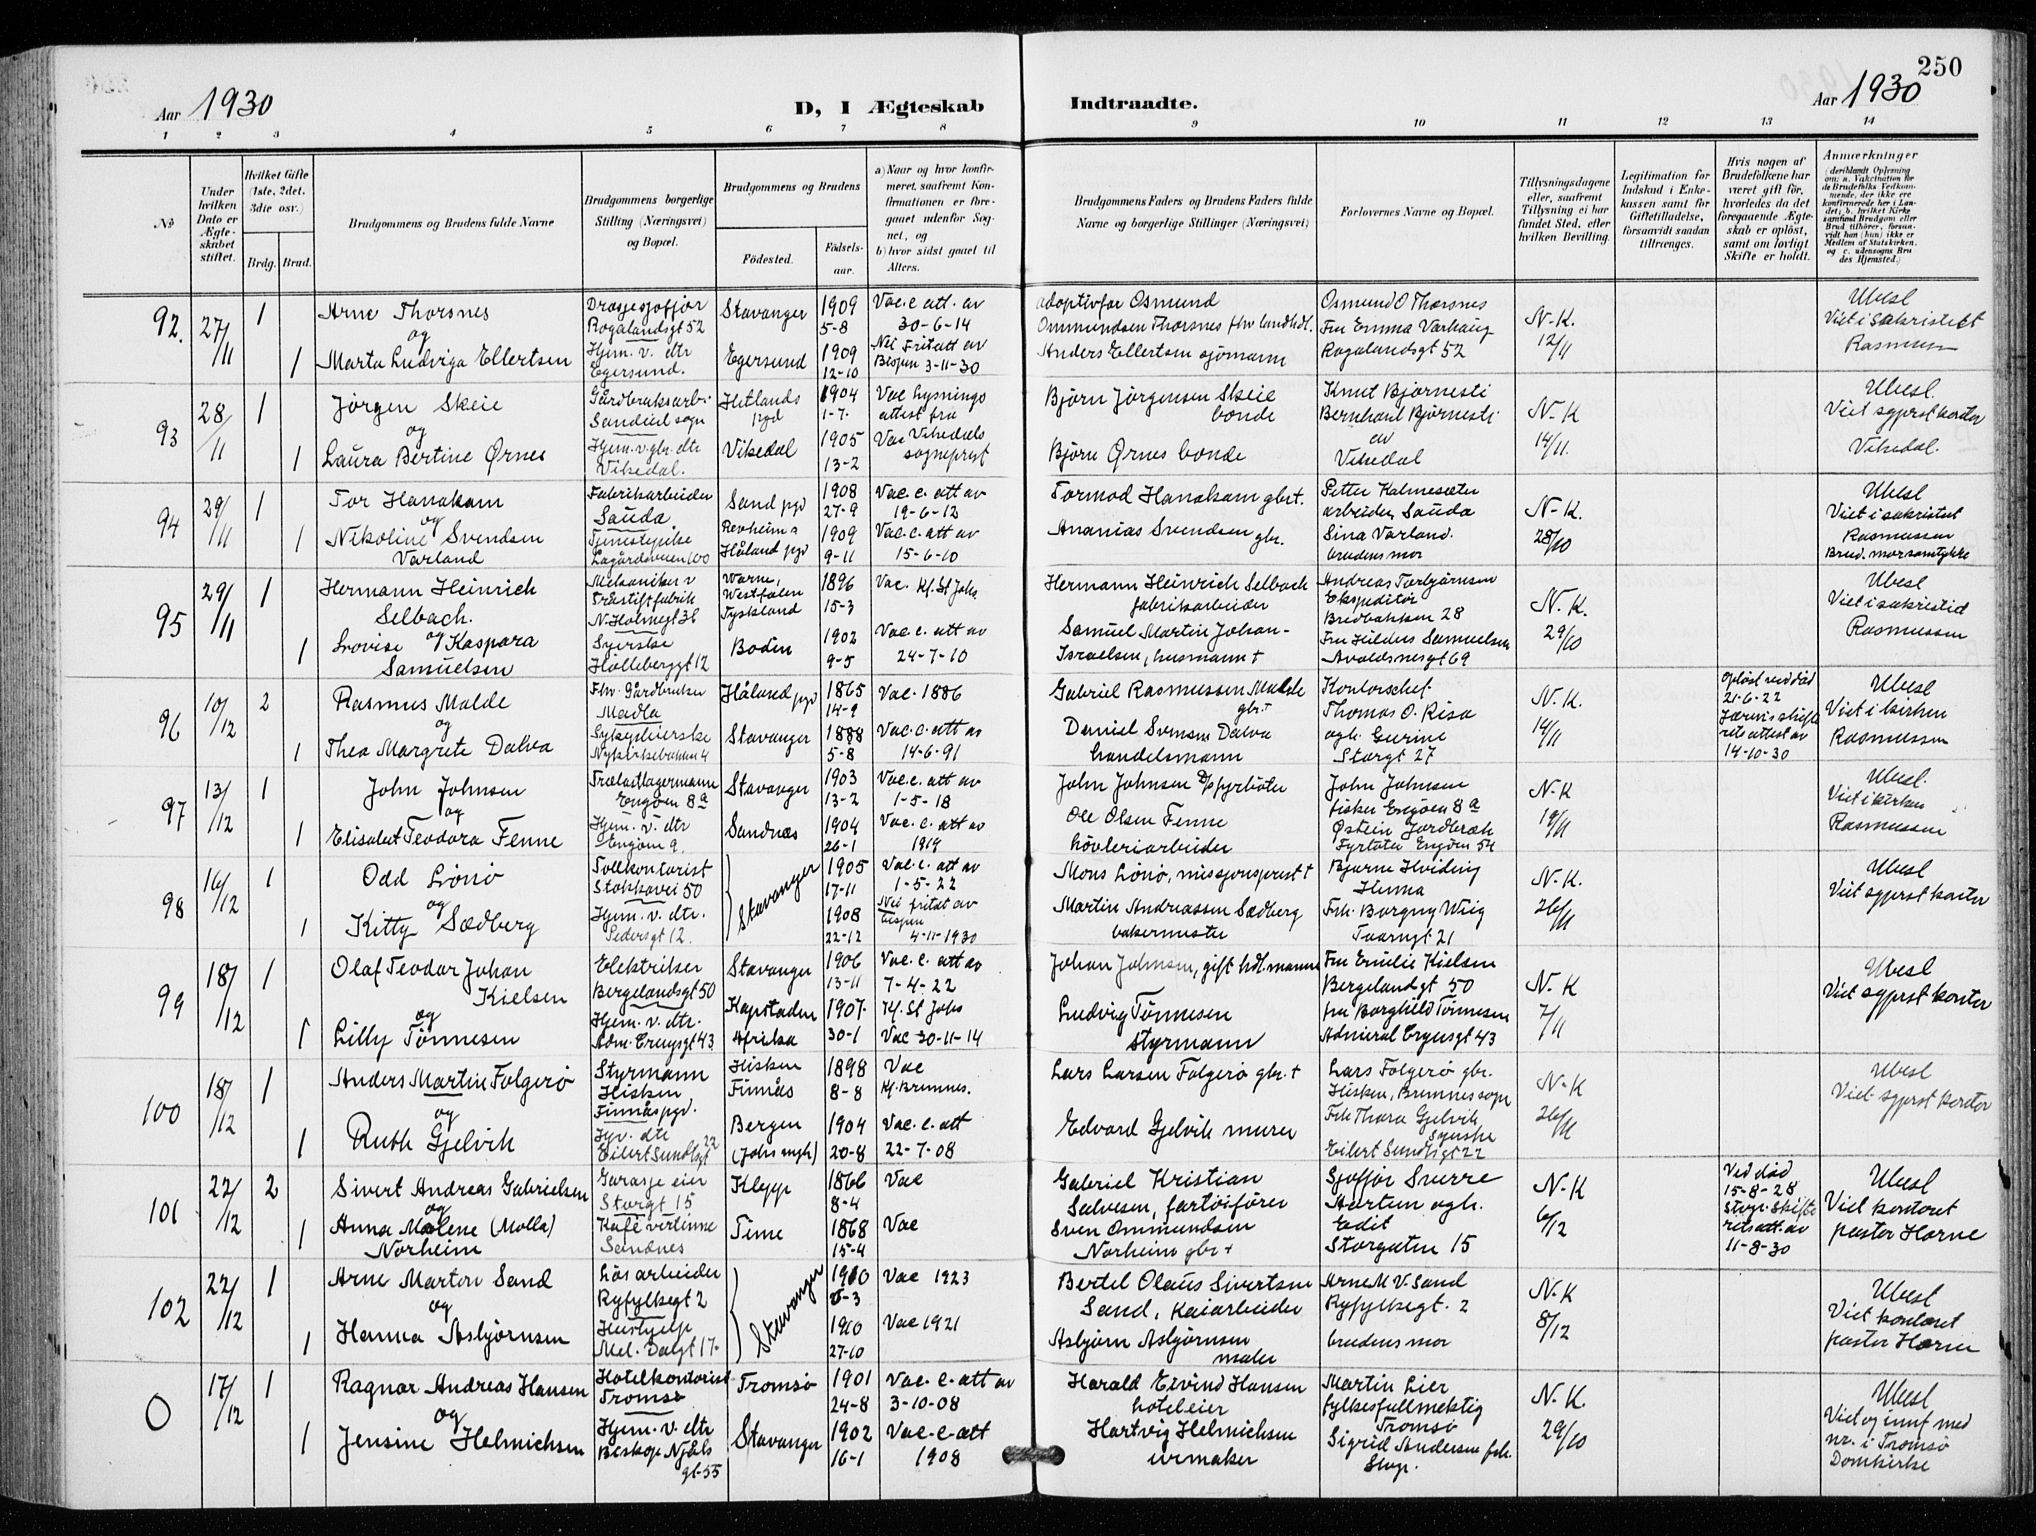 250
Aar 1930
D, I Ægteskab Indtraadte.
Aar 1930
1 2 3 4 5 6 7 8 9 10 11 12 13 14
No
Under hvilken Dato er Ægteskabet stiftet.
Hvilket Gifte (1ste, 2det, 3die osv.)
Brdg. Brud.
Brudgommens og Brudens fulde Navne
Brudgommens borgerlige Stilling (Næringsvei) og Bopæl.
Brudgommens og Brudens
Fødested.
Fødselsaar.
a) Naar og hvor konfirmeret, saafremt Konfirmationen er foregaaet udenfor Sognet, og
b) hvor sidst gaaet til Alters.
Brudgommens Faders og Brudens Faders fulde Navne og borgerlige Stillinger (Næringsvei)
Forlovernes Navne og Bopæl.
Tillysningsdagene eller, saafremt Tillysning ei har fundet Sted, efter hvilken Bevilling.
Legitimation for Indskud i Enkekassen samt for Giftetilladelse, forsaavidt saadan tiltrænges.
Hvis nogen af Brudefolkene har været gift før, hvorledes da det foregaaende Ægteskab er opløst, samt om lovligt Skifte er holdt.
Anmerkninger
92. 27/11 1 Arne Thorsnes
og
1 Marta Ludviga Ellertsen
Rogalandsgt 52
Hjem. v. dtr
Egersund.
Stavanger 1909 5-8
Egersund 1909 12-10
Vac. e. att. av
30-6-14
Bispen 3-11-30
adoptivfar Osmund
Ommundsen Thorsnes fhv landhdl.
Anders Ellertsen sjømann
Osmund O Thorsnes
Fru Emma Varhaug
Rogalandsgt 52
N-K.
12/11
Ubesl
Viet i sakristiet
Rasmussen
93 28/11 1 Jörgen Skeie
og
1 Laura Bertine Ørnes
Gårdbruksarb.
Hjem. v. gbr. dtr
Vikedal.
Hetlands pgd 1904 1-7.
Vikedal 1905 13-2
Vac lysnings
attest fra
Vac Vikedals
sogneprest
Björn Jörgensen Skeie
bonde
Björn Ørnes bonde
Knut Bjørnesti
Bernhard Bjørnesti
Vikedal
N-K
14/11.
Ubesl.
Viet sgprst kontor
Vikedal.
94 29/11 1 Tor Hanakam
og
1 Nikoline Svendsen
Varland
Fabrikarbeider
Sauda
Lagårdsveien 100
Sand pgd 1908 27-9
Håland pgd 1909 9-11
Vac. e. att av
19-6-12
Vac. e. att av
15-6-10
Tormod Hanakam gbr.
Ananias Svendsen gbr.
Petter Kalmesæter
arbeider, Sauda
Sina Varland.
brudens mor
N-K.
28/10
Ubesl
Viet i sakristiet
Rasmussen
Brud. mor samtykke
95 29/11 1 Hermann Heinrich
Selbach.
og
1 Lovise Kaspara
Samuelsen
Mekaniker v
N. Holmegt 36
Syerske
Hölleberggt 12
Westfalen
Tyskland 1896 15-3
Boden 1902 9-5
Vac. Kf. St Johs
Vac. e. att av
24-7-10
Hermann Heinrich Selbach
fabrikarbeider
Samuel Martin Johan-
Israelsen, husmann +
Andreas Torbjørnsen
Ekspeditör
Bredbakken 28
Avaldsnesgt 69
N-K.
29/10
Ubesl
Viet i sakristid
Rasmussen
96 10/12 2 Rasmus Malde
og
1 Thea Margrete Dalva
Fhv. Gårdbruker
Madla
Sykepleierske
Nykirkebakken 4
Håland pgd 1865 14-9
Stavanger 1888 5-8
Vac. 1886
Vac. e. att av
14-6-91
Gabriel Rasmussen Malde
gbr +
Daniel Svensen Dalva
handelsmann
Kontorchef
Thomas O. Risa
ogh. Gurine
Storgt 27
N-K.
14/11
Opløst ved død
21-6-22
14-10-30
Ubesl
Viet i kirken
Rasmussen
97 13/12 1 John Johnsen
og
1 Elisabet Teodora Fenne
Trælastlagermann
Engöen 8a
Hjem. v. dtr
Engöen 9.
Stavanger 1903 13-2
Sandnes 1904 26-1
Vac. e. att av
1-5-18
Vac. e. att av
1919
John Johnsen
Ole Olsen Fenne
hövleriarbeider
John Johnsen
fisker Engöen 8a
Engöen 54
N-K
19/11
Ubesl.
Viet i kirken
Rasmussen
98 16/12 1 Odd Lönö
og
1 Kitty Sædberg
Tollkontorist
Stokkavei 50
Hjem. v. dtr.
Pedersgt 12.
Stavanger
1905 17-11
1908 22-12
Vac. e. att av
1-5-22
Nei fritatt av
bispen
4-11-1930
Mons Lönö, misjonsprest +
Martin Andreassen Sædberg
bakermester
Bjarne Hviding
Hinna
Frk. Borgny Wiig
N-K.
26/11
Ubesl
Viet sgprst kontor
99 18/12 1 Olaf Teodor Johan
Kielsen
og
1 Lilly Tönnesen
Elektriker
Bergelandsgt 50
Hjem. v. dtr.
Adm. Cruysgt 43
Stavanger 1906 13-11
Kapstaden
Afrika 1907. 30-1
Vac. e. att av
7-4-22
Kf. St Johs
Vac 30-11-14
Johan Johnsen, gift hdl. mann
Ludvig Tönnesen
Styrmann
Fru Emilie Kielsen
Bergelandgt 50
fru Borghild Tönnesen
Admiral Cruysgt 43
N-K
7/11
Ubesl
Viet sgprst kontor
100 18/12 1 Anders Martin Folgerö
og
1 Ruth Gjelvik
Styrmann
Hisken
Finnåspgd.
Eilert Sundtsgt 22
Hisken
Finnås 1898 8-8
Bergen
(Johs mgh) 1904 20-8
Vac
Kf. Bremnes.
Vac. e. att
22-7-08
Lars Larsen Folgerö gbr. +
Edvard Gjelvik murer
Lars Folgerö gbr.
Hisken, Bremnes sogn
Frk Thora Gjelvik
Syerske
Eilert Sundtsgt 22
N-K
26/11
Ubesl
Viet sgprst kontor
101 22/12 2 Sivert Andreas Gabrielsen
og
1 Anna Malene (Malla)
Norheim
Garasje eier
Storgt 15
Kafévertinne
Sandnes
Klepp 1866 8-4
Time 1868 15-4
Vac
Vac
Gabriel Kristian
Salvesen, fartöiförer
Sven Ommundsen
Norheim gbr +
Sjofför Sverre
Aartun ogh.
Edit
Storgaten 15
N-K
6/12
Ved död
15-8-28
11-8-30
Ubesl
Viet kontoret
pastor Horne
102 22/12 1 Arne Marton Sand
og
1 Hanna Asbjörnsen
Lös arbeider
Ryfylkegt 2
Hushjelp
Stavanger
1910
1910 27-10
Vac 1923
Vac 1921
Bertel Olaus Sivertsen
Sand, Kaiarbeider
Asbjörn Asbjörnsen
maler
Arne M V. Sand
Ryfylkegt. 2
brudens mor
N-K
8/12
Ubesl
Viet kontoret
pastor Horne
0 17/12 1 Ragnar Andreas Hansen
og
1 Jensine Helmichsen
Hotelkontorist
Tromsø
Hjem. v. dtr
Biskop Njåls
gt-55
Tromsø 1901 24-8
Stavanger 1902 16-1
Vac. e. att av
3-10-08
Vac. e. att
1908
Harald Eivind Hansen
hoteleier
Hartvig Helmichsen
urmaker
Martin Lier
fylkesfullmektig
Tromsø
Sigrid Andersen frk.
N-K.
29/10
Ubesl
Viet og innf med
nr. i Tromsø
Domkirke